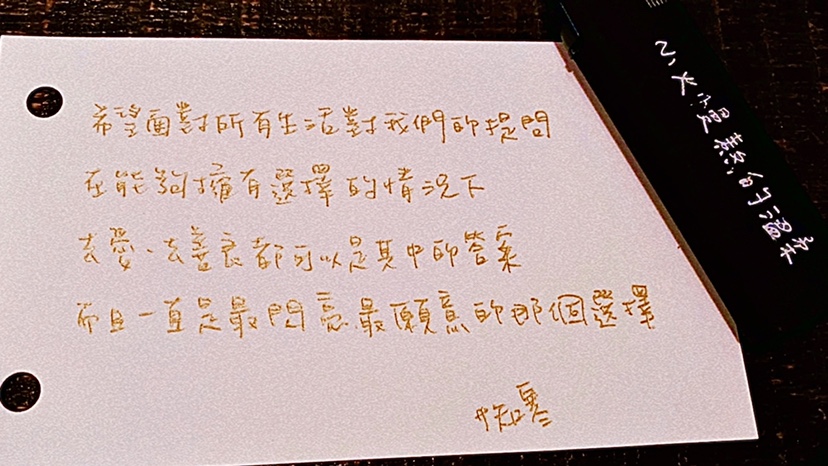 希望面對所有生活對我們的提問
在能夠擁有選擇的情況下
去愛、去善良都可以是其中的答案
而且一直是最閃亮最願意的那個選擇
知寒
小火慢熬的溫柔